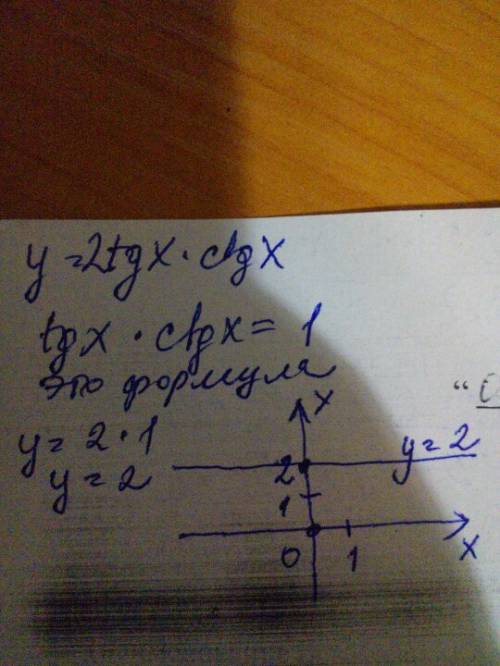 y = 2tgx · ctgx
tgx · ctgx = 1
это формула
y = 2 · 1
y = 2
x
y = 2
2
1
0
1
x